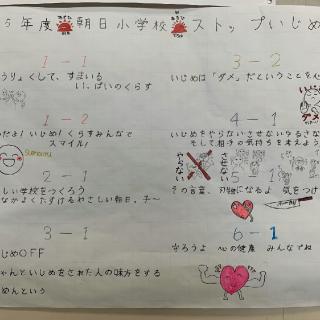 5年度 朝日小学校 ストップいじめ
1-1
うりょくして、すまいる
いっぱいのくらす
1-2
だよ!いじめ!くらすみんなで
スマイル!
2-1
しい学校をつくろう
なかよくたすけるやさしい朝日っ子〜
3-1
じめOFF
ゃんといじめをされた人の味方をする
めんという
3-2
いじめは「ダメ」だということを心
4-1
いじめをやらないさせないゆるさな
そして相手の気持ちを考えよう
やらない
させない
5-1
その言葉、刃物になるよ 気をつけ
6-1
守ろうよ 心の健康 みんなでね